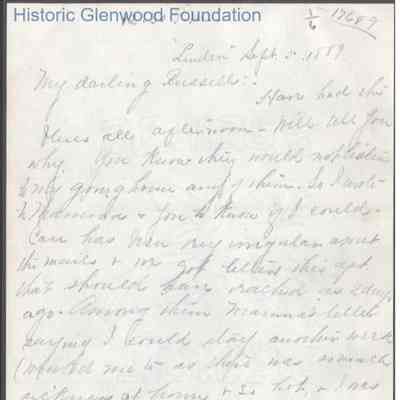 Historic Glenwood Foundation
1/6 17689
"Linden" Sept 5. 1889
My darling Russell:-
Have had the
blues all afternoon - Will tell you
why. You know they would not listen
to my going home any of them. So I wrote
to Mamma & you to know if I could.
Carr has been very irregular about
the mails & we got letters this
that should have reached us 2 days
ago. Among them Mamma's letter
saying I could stay another week
(wanted me to as there was so much
sickness at home & so hot, & I was